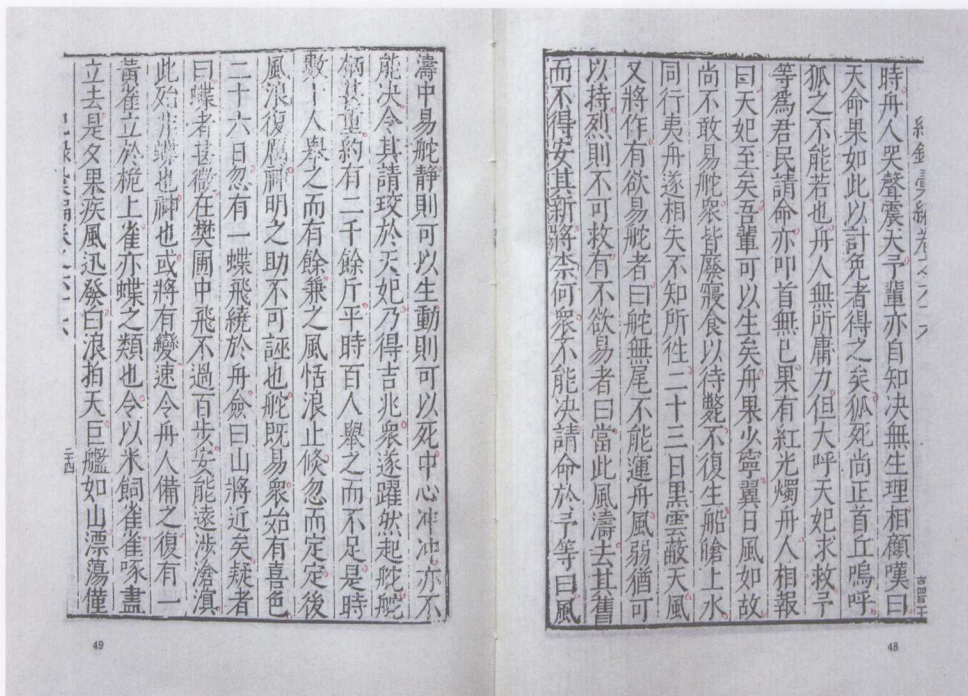 紀錄彙編卷之六十六
時舟人哭聲震天予輩亦自知決無生理相顧嘆曰
天命果如此以計免者得之矣狐死尚正首丘嗚呼
狐之不能若也舟人無所庸力但大呼天妃求救予
等為君民請命亦叩首無已果有紅光燭舟人相報
曰天妃至矣吾輩可以生矣舟果少寧翼日風如故
尚不敢易舵衆皆廢寢食以待斃不復生船艙上水
同行夷舟遂相失不知所徃二十三日黑雲蔽天風
又將作有欲易舵者曰舵無尾不能運舟風弱猶可
以持烈則不可救有不欲易者曰當此風濤去其舊
而不得安其新將柰何衆不能決請命於予等曰風
48
濤中易舵靜則可以生動則可以死中心冲冲亦不
能决令其請珓於天妃乃得吉兆衆遂躍然起舵舵
柄甚重約有二千餘斤平時百人舉之而不足是時
數十人舉之而有餘兼之風恬浪止倐忽而定定後
風浪復厲神明之助不可誣也舵既易衆始有喜色
二十六日忽有一蝶飛繞於舟僉曰山將近矣疑者
曰蝶者甚微在樊圃中飛不過百步安能遠涉滄溟
此殆非蝶也神也或將有變速令舟人備之復有一
黃雀立於桅上雀亦蝶之類也令以米飼雀雀啄盡
立去是夕果疾風迅發白浪拍天巨艦如山漂蕩僅
紀錄彙編卷之六十六
49